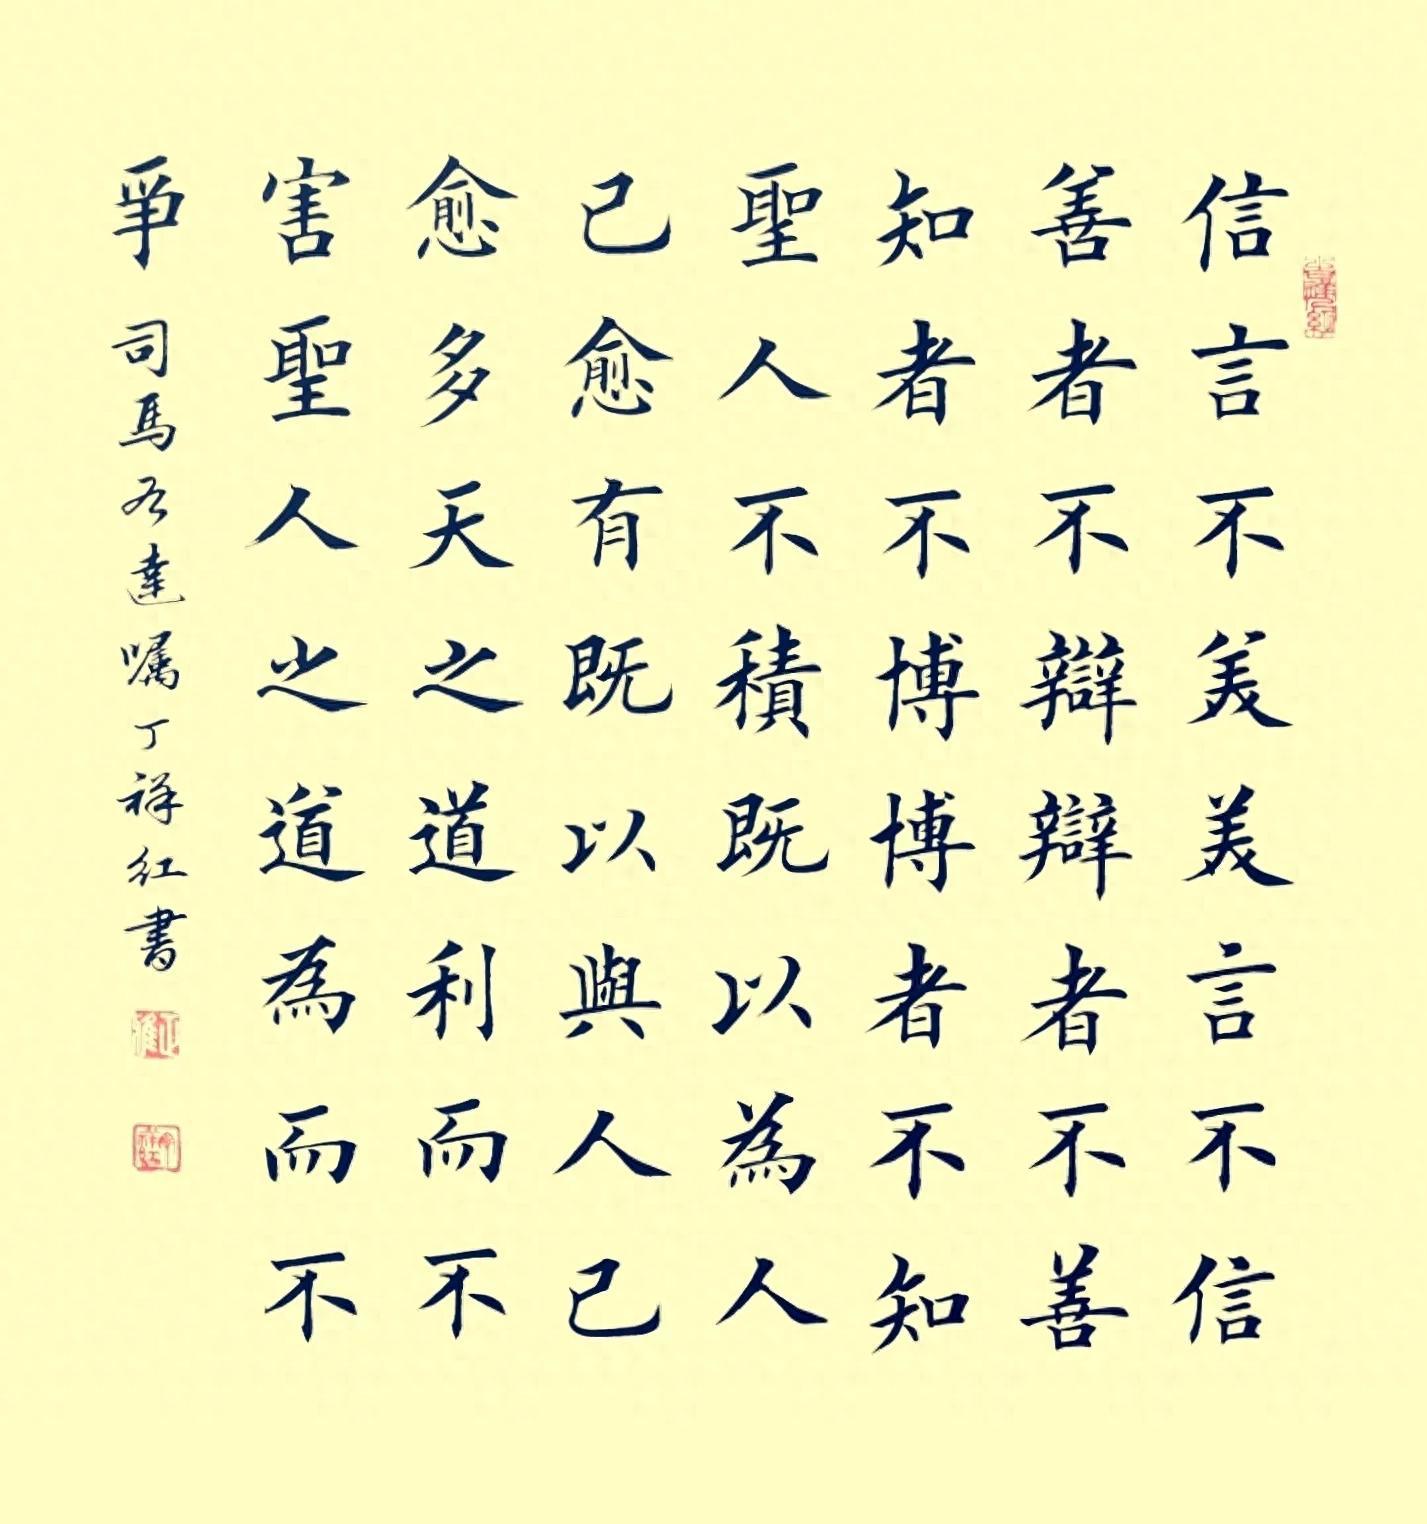 信言不美美言不信
善者不辯辯者不善
知者不博博者不知
聖人不積既以為人
己愈有既以與人己
愈多天之道利而不
害聖人之道為而不
爭
司馬友達嘱丁祥红書